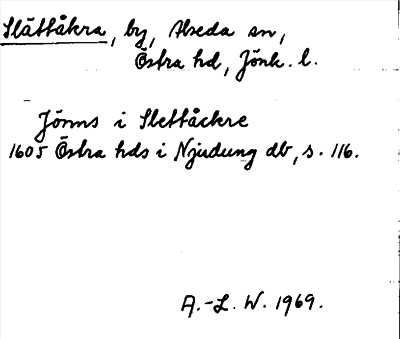 Slättåkra, by, Alseda sn,
Östra hd, Jönk. l.
Jönns i Slettåckre
1605 Östra hds i Njudung db, s. 116.
A.-L. W. 1969.